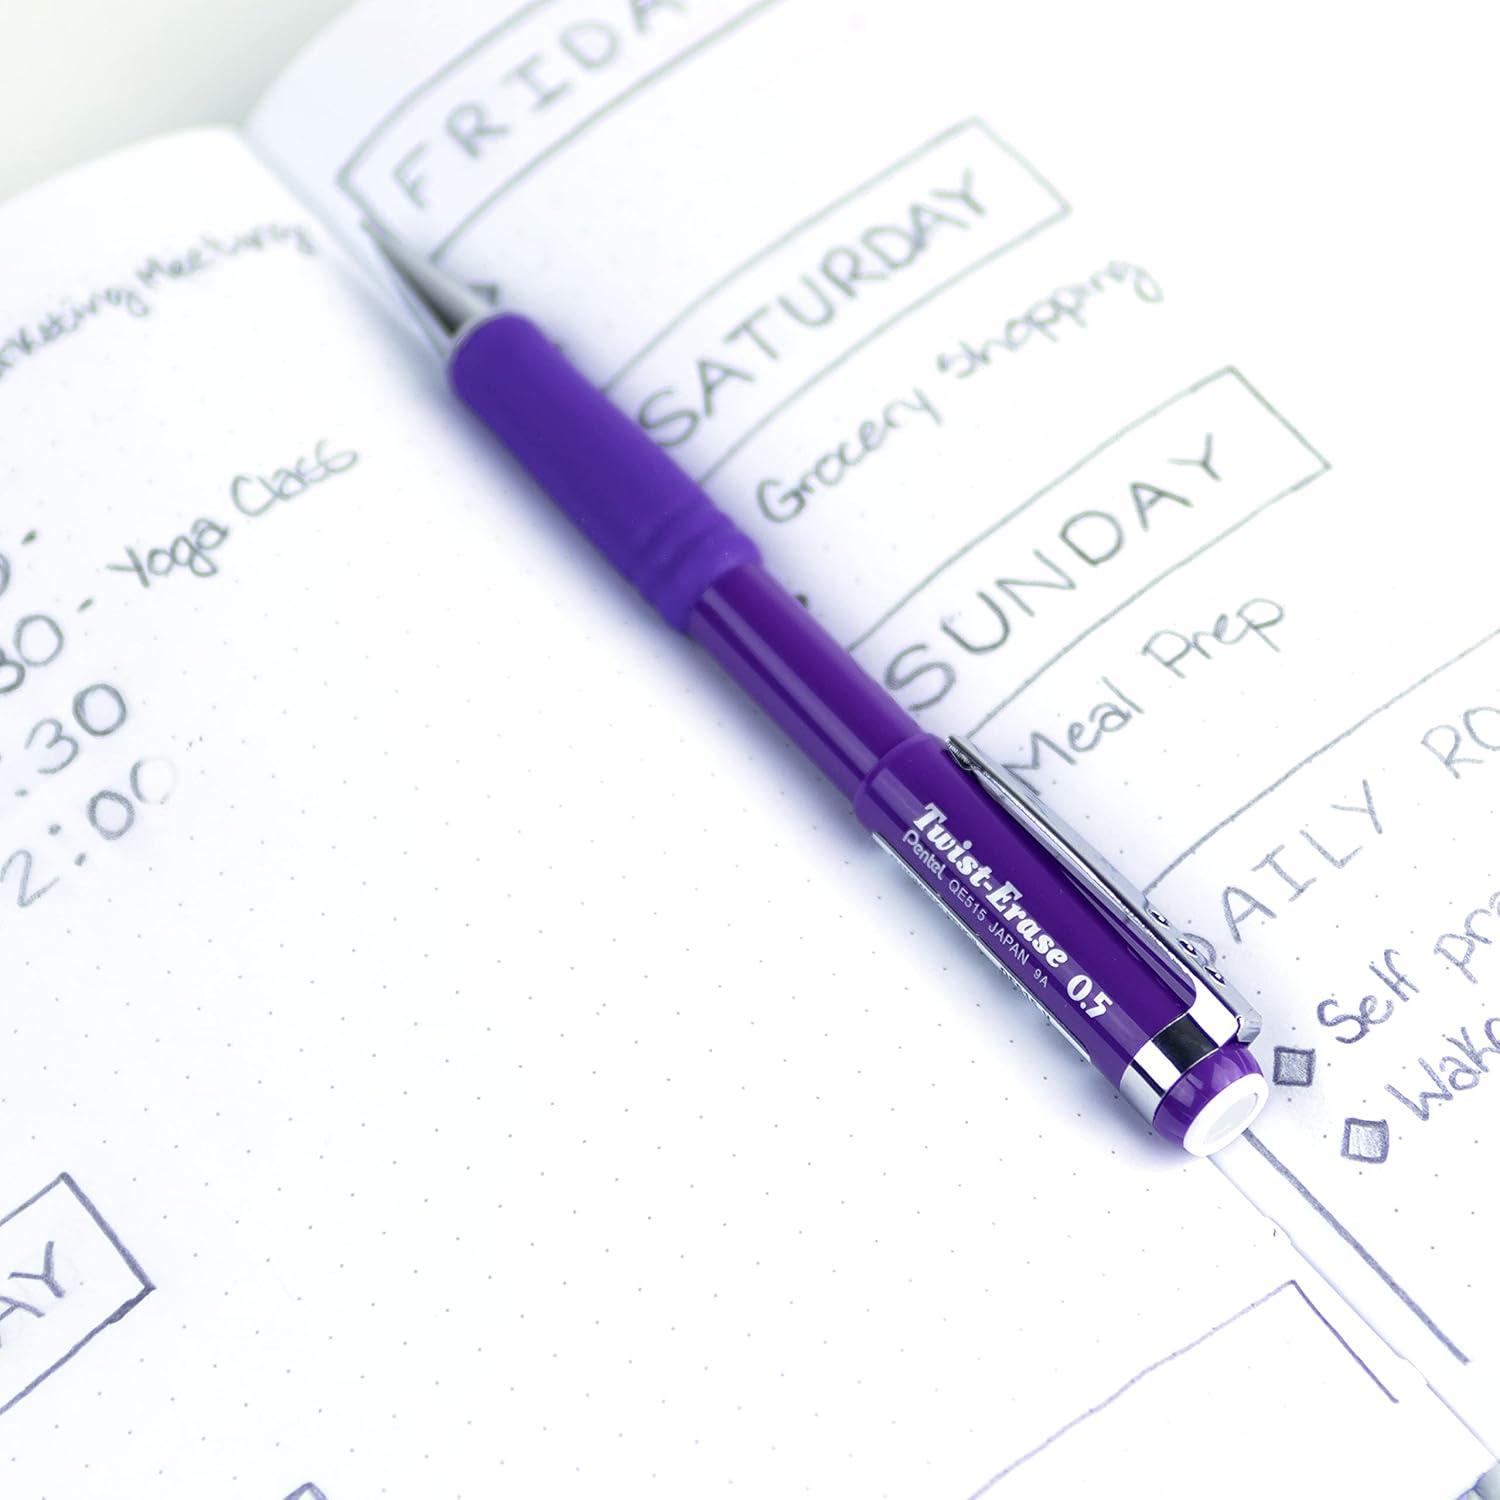 Meeting
- Yoga Class
30
:30
2:00
AY
FRIDA
SATURDAY
Grocery shopping
SUNDAY
Meal Prep
AILY RO
Self pra
Wake
Twist-Erase 0.5
Pentel QE515 JAPAN 9A